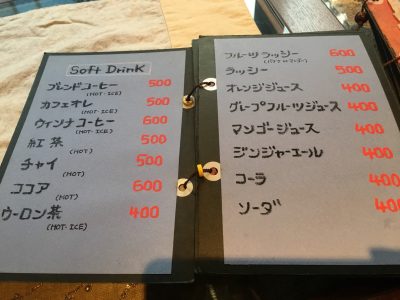 Soft Drink
ブレンドコーヒー 500
(HOT・ICE)
カフェオレ 500
(HOT・ICE)
ウィンナコーヒー 600
(HOT・ICE)
紅茶 500
(HOT)
チャイ 500
(HOT)
ココア 600
(HOT)
ウーロン茶 400
(HOT・ICE)
フルーツラッシー 600
ラッシー 500
オレンジジュース 400
グレープフルーツジュース 400
マンゴージュース 400
ジンジャーエール 400
コーラ 400
ソーダ 400